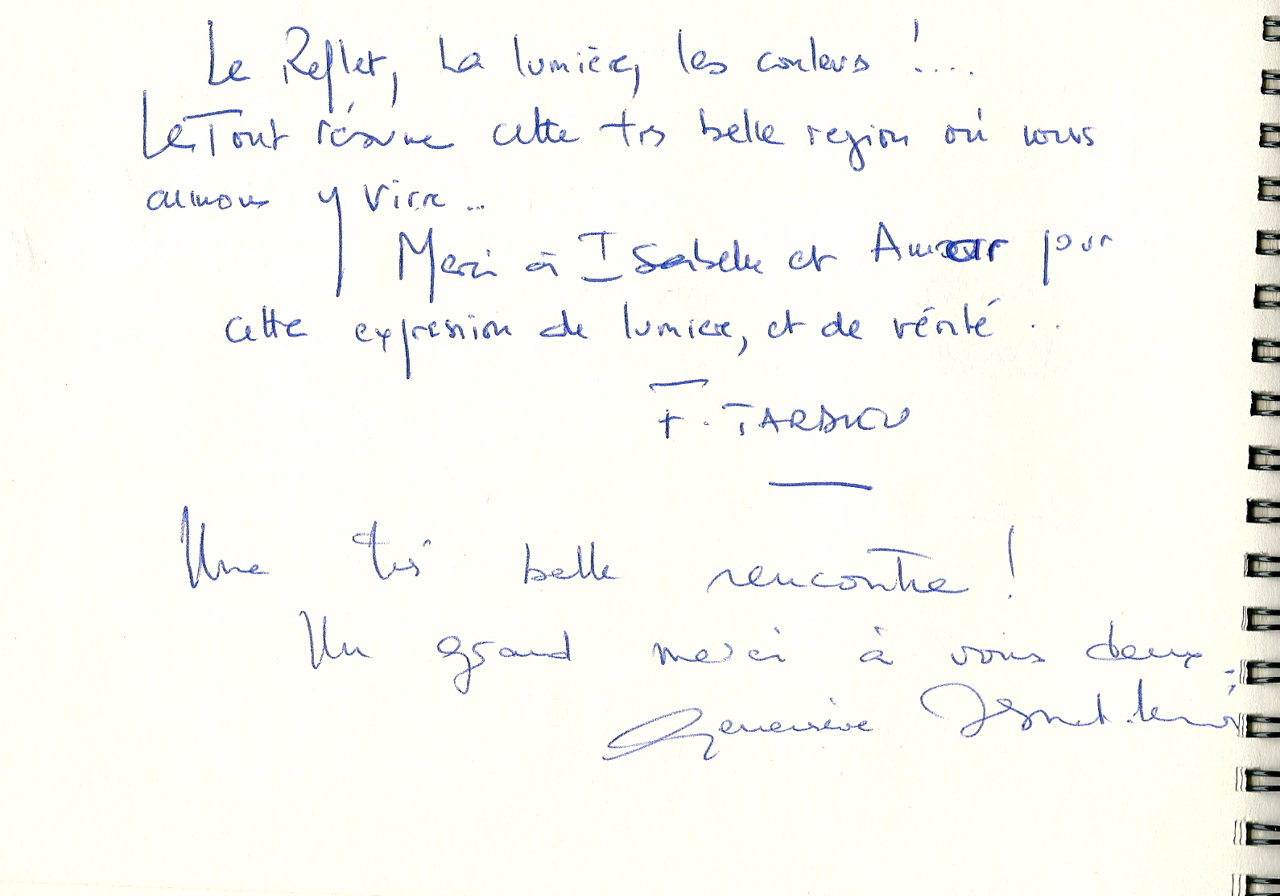 Le Reflet, La lumière, les couleurs !....
Le Tout résume cette très belle region où nous
aimons y vivre ..
Merci à Isabelle et Amar pour
cette expression de lumière, et de vérité ..
F. TARDIEU
Une très belle rencontre !
Un grand merci à vous deux.
Geneviève